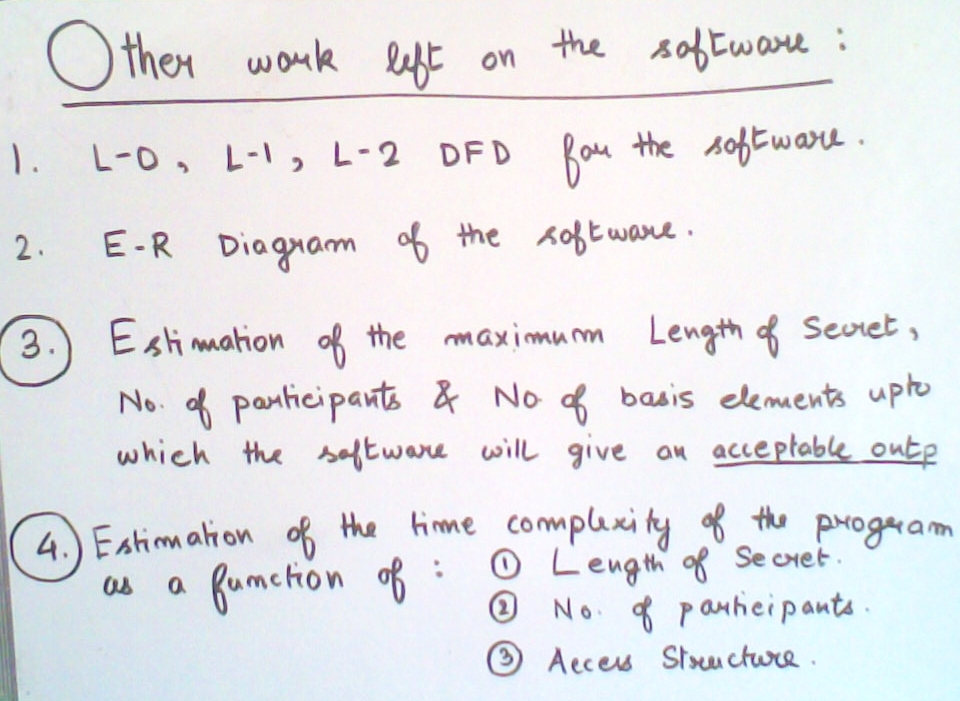 Other work left on the software :
1. L-0, L-1, L-2 DFD for the software.
2. E-R Diagram of the software.
3. Estimation of the maximum Length of Secret,
No. of participants & No. of basis elements upto
which the software will give an acceptable outp
4. Estimation of the time complexity of the program
as a function of : ① Length of Secret.
② No. of participants.
③ Access Structure.